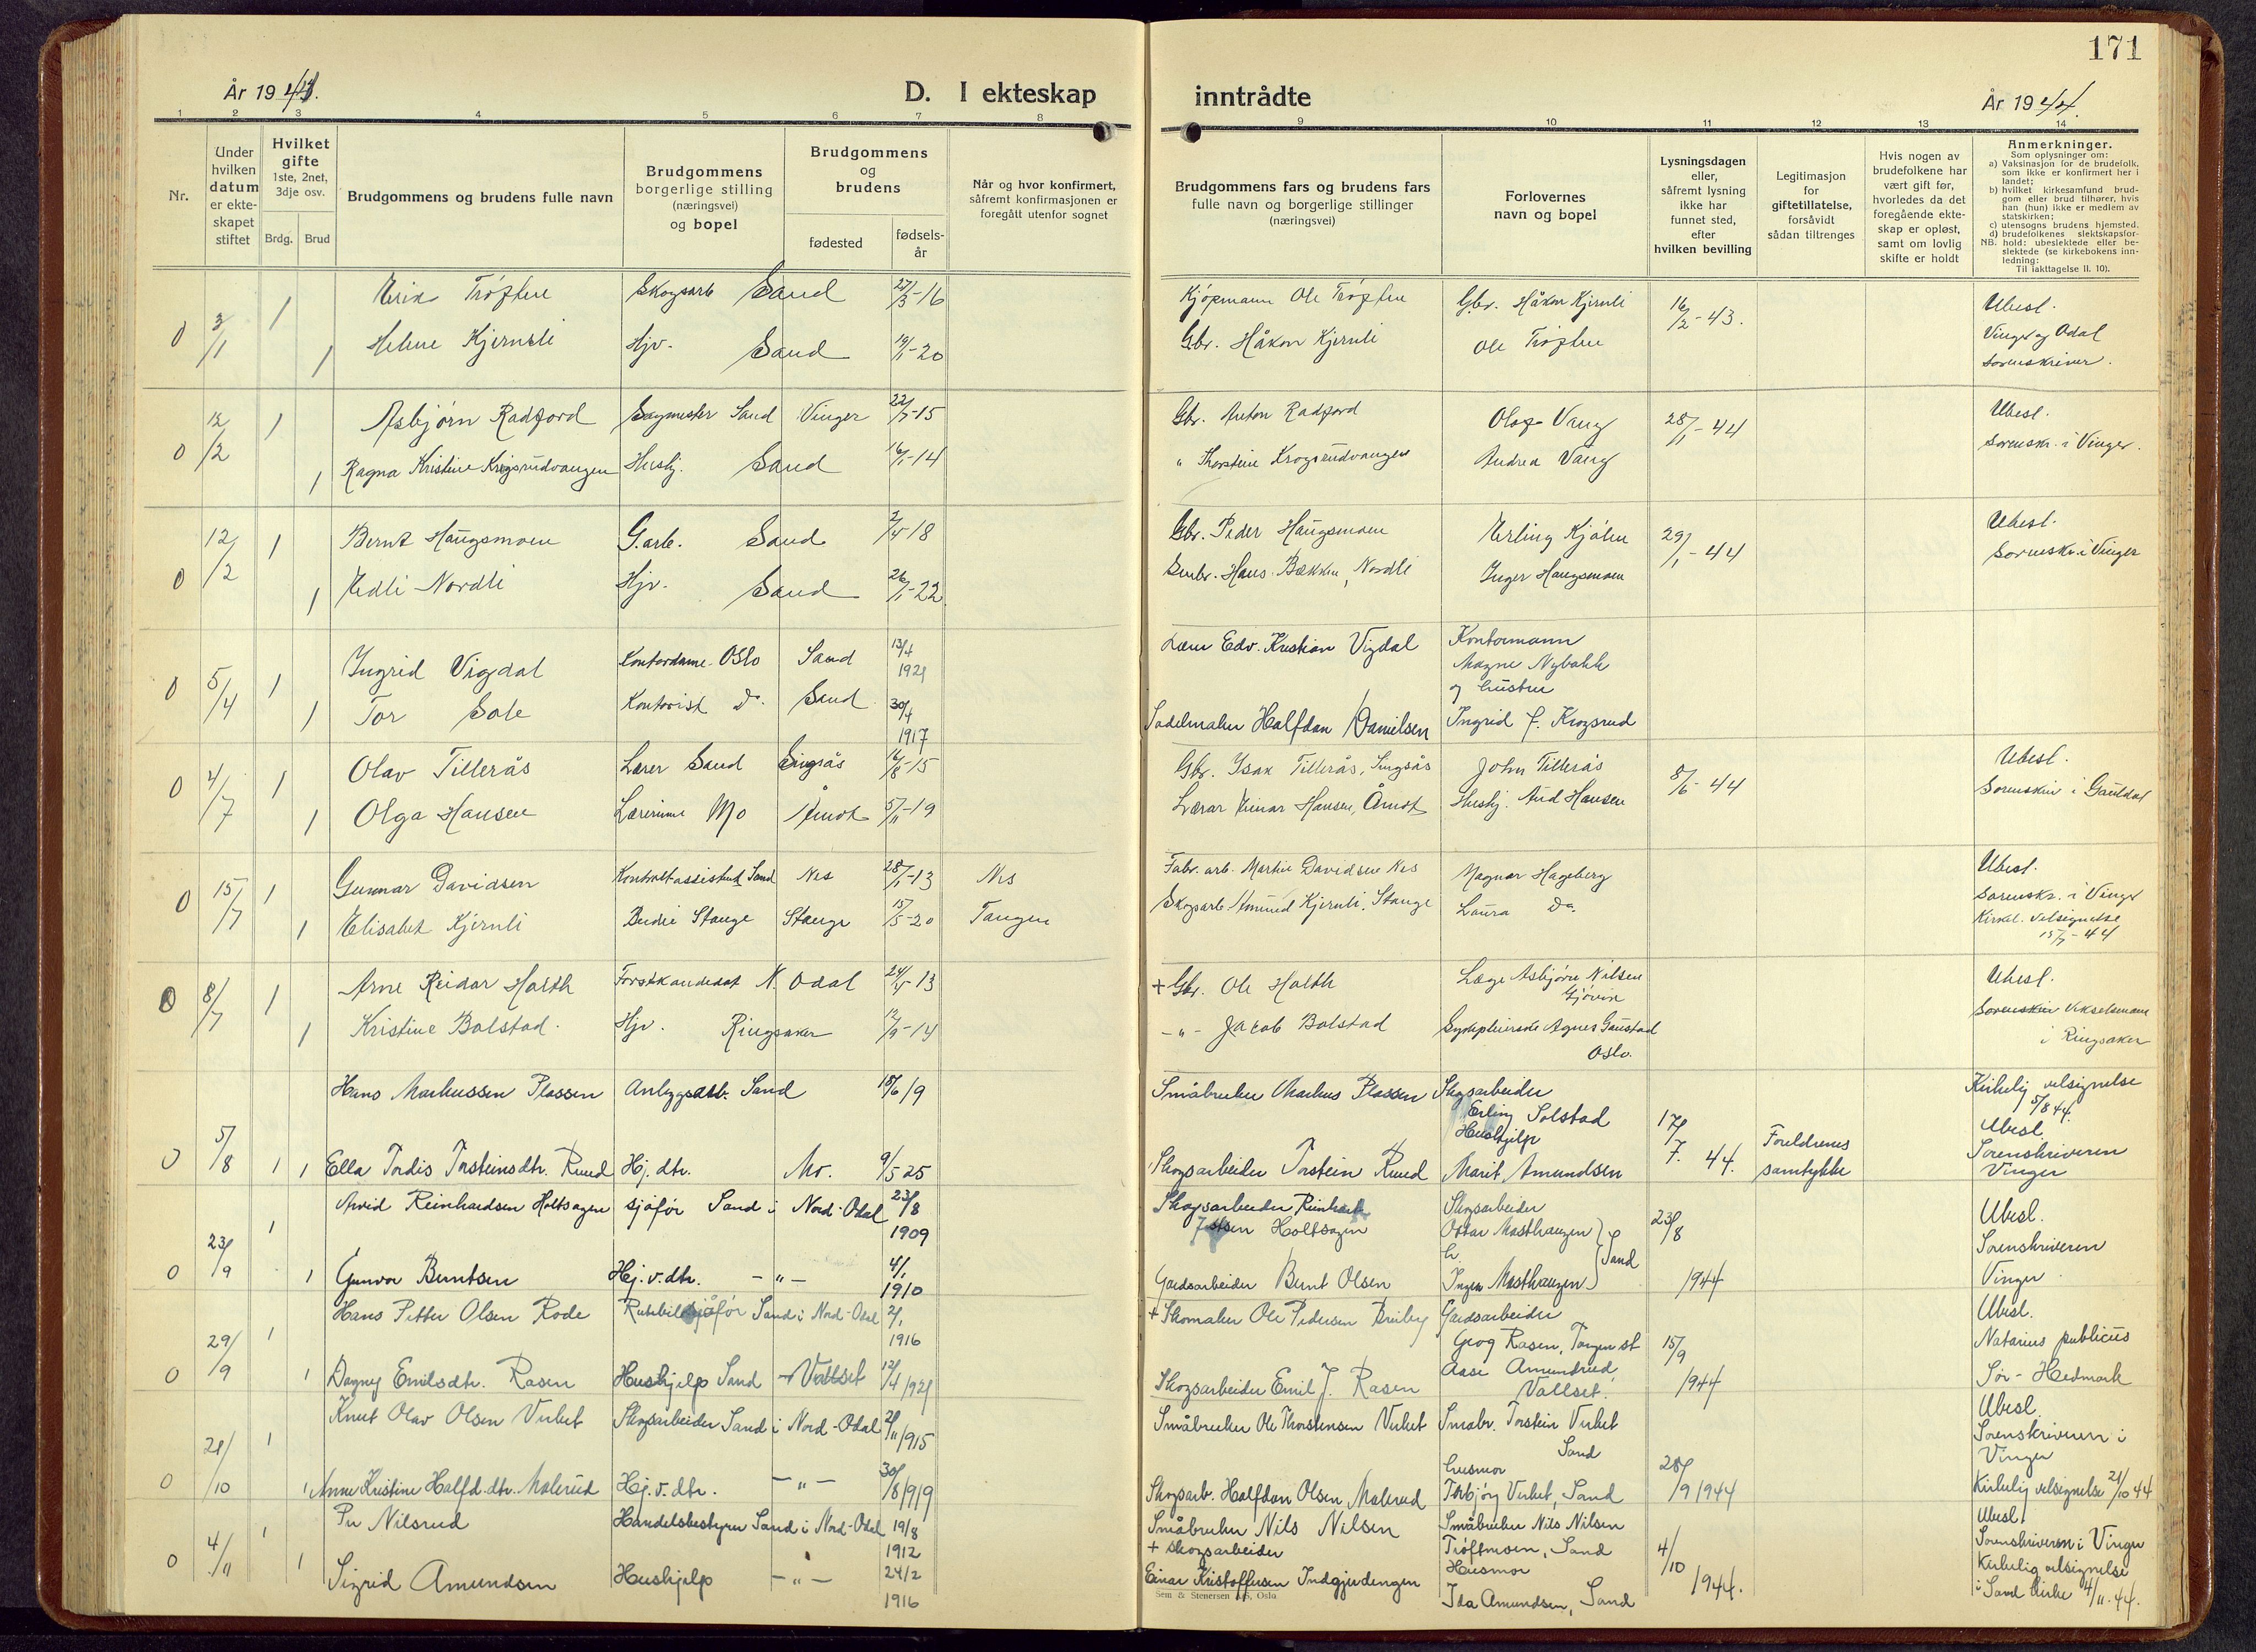 171
År 1944.
D. I ekteskap
inntrådte
År 1944.
1 2 3 4 5 6 7 8 9 10 11 12 13 14
Nr.
Under hvilken datum er ekteskapet stiftet
Hvilket gifte 1ste, 2net, 3dje osv.
Brdg. Brud
Brudgommens og brudens fulle navn
Brudgommens borgerlige stilling (næringsvei) og bopel
Brudgommens og brudens
fødested
fødselsår
Når og hvor konfirmert, såfremt konfirmasjonen er foregått utenfor sognet
Brudgommens fars og brudens fars fulle navn og borgerlige stillinger (næringsvei)
Forlovernes navn og bopel
Lysningsdagen eller, såfremt lysning ikke har funnet sted, efter hvilken bevilling
Legitimasjon for giftetillatelse, forsåvidt sådan tiltrenges
Hvis nogen av brudefolkene har vært gift før, hvorledes da det foregående ekteskap er opløst, samt om lovlig skifte er holdt
Anmerkninger.
Som oplysninger om:
a) Vaksinasjon for de brudefolk, som ikke er konfirmert her i landet;
b) hvilket kirkesamfund brudgom eller brud tilhører, hvis han (hun) ikke er medlem av statskirken;
c) utensogns brudens hjemsted.
d) brudefolkenes slektskapsforhold: ubeslektede eller beslektede (se kirkebokens innledning:
NB.
Til iakttagelse II. 10).
0 3/1 1 Erik Trøften Skogsarb Sand 27/3-16 Kjøpmann Ole Trøften Gbr. Håkon Kjernli 16/2-43. Ubesl.
1 Helene Kjernsli Hjv. Sand 19/1-20 Gbr. Håkon Kjernli Ole Trøften Vinger og Odal
sorenskriver.
0 12/2 1 Asbjørn Radford Sagmester Sand Vinger 22/7-15 Gbr. Anton Radford Olaf Vang 28/1-44 Ubesl.
1 Ragna Kristine Krogsrudvangen Hushj. Sand 16/1-14 " Thorstein Krogsrudvangen Andrea Vang sorenskr. i Vinger.
0 12/2 1 Bernt Haugsmoen G.arb. Sand 2/5-18 Gbr. Peder Haugsmoen Erling Kjølen 29/1-44 Ubesl.
1 Edli Nordli Hjv. Sand 26/1-22 Smbr. Hans Bækken, Nordli Inger Haugsmoen Sorenskr. i Vinger
0 5/4 1 Ingrid Vigdal Kontordame Oslo Sand 13/4 1921 Edv. Kristian Vigdal Kontormann
Magne Nybakk
og hustru
1 Tor Sole Kontorist Do. Sand 30/4 1917 Sadelmaker Halfdan Danielsen Ingrid f. Krogsrud
0 4/7 1 Olav Tillerås Lærer Sand Singsås 16/8-15 Gbr. Isak Tillerås, Singsås John Tillerås 8/6-44 Ubesl.
1 Olga Hansen Lærerinne Mo Åmot 5/11-19 Lærar Einar Hansen, Åmot Hushj. Aud Hansen Sorenskriv i Gauldal
0 15/7 1 Gunnar Davidsen Kontrollassistent Sand Nes 28/1-13 Nes Fabr. arb. Martin Davidsen Nes Magnar Hageberg Ubesl.
1 Elisabet Kjernli Budeie Stange Stange 15/5-20 Tangen Skogsarb. Amund Kjernli, Stange Laura Do. Sorenskr. i Vinger
Kirkel. velsignelse
15/7-44
0 8/7 1 Arne Reidar Holth Forstkandidat N. Odal 24/4-13 + Gbr. Ole Holth Læge Asbjørn Nilsen
Gjøvik Ubesl.
1 Kristine Bolstad. Hjv. Ringsaker 12/9-14 -"- Jacob Bolstad Sykepleierske Agnes Gaustad
Oslo. Sorenskriv Vekselmann
i Ringsaker
Hans Markussen Plassen Anleggsarb. Sand 15/6 19 Småbruker Markus Plassen Skogsarbeider
Erling Solstad
Hushjelp Kirkelig velsignelse
5/8 44.
0 5/8 1 1 Ella Tordis Torsteinsdtr. Ruud Hj. dtr. Mo. 9/5 25 Skogsarbeider Torstein Ruud Marit Amundsen 17/7. 44. Foreldrenes
samtykke Ubesl.
Sorenskriveren
Vinger
1 Arvid Reinhardsen Holtsagen sjåfør Sand i Nord-Odal 23/8 1909 Skogsarbeider Reinhardt
Holtsagen Skogsarbeider
Ottar Masthaugen 23/8 Ubesl.
0 23/9 1 Gunvor Berntsen Hj. v. dtr. -"- 4/1 1910 Gardsarbeider Bernt Olsen Inger Masthaugen Sand 1944 Sorenskriveren
Vinger.
1 Hans Petter Olsen Rode Rutebilsjåfør Sand i Nord-Odal 2/1 1916 + Skomaker Ole Pedersen Breiby Gardsarbeider
Georg Rasen, Tangen st 15/9 Ubesl.
Notarius publicus
0 29/9 1 Dagny Emilsdtr. Rasen Hushjelp Sand - Vallset 12/4 1921 Skogsarbeider Emil J. Rasen Aase Amundrud,
Vallset. 1944 Sør-Hedmark
1 Knut Olav Olsen Virket Skogsarbeider Sand i Nord-Odal 2/11 1915 Småbruker Ole Thorstensen Virket Småbr. Torstein Virket
Sand Ubesl.
Sorenskriveren i
Vinger
0 21/10 1 Anne Kristine Halfd.dtr. Malerud Hj. v. dtr. -"- 30/8 1919 Skogsarb. Halfdan Olsen Malerud husmor
Torbjørg Virket, Sand 28/9 1944 Kirkelig velsignelse 21/10 44
1 Per Nilsrud Handelsbestyrer Sand i Nord-Odal 19/8 1912 Småbruker Nils Nilsen Småbruker Nils Nilsen
Trøftmoen, Sand Ubesl.
Sorenskriveren i Vinger
0 4/11 1 Sigrid Amundsen Hushjelp -"- 24/2 1916 + skogsarbeider
Einar Kristoffersen Indgjerdingen Husmor
Ida Amundsen, Sand 4/10 1944. Kirkelig velsignelse
i Sand kirke 4/11. 44.
Sem & Stenersen A/S, Oslo